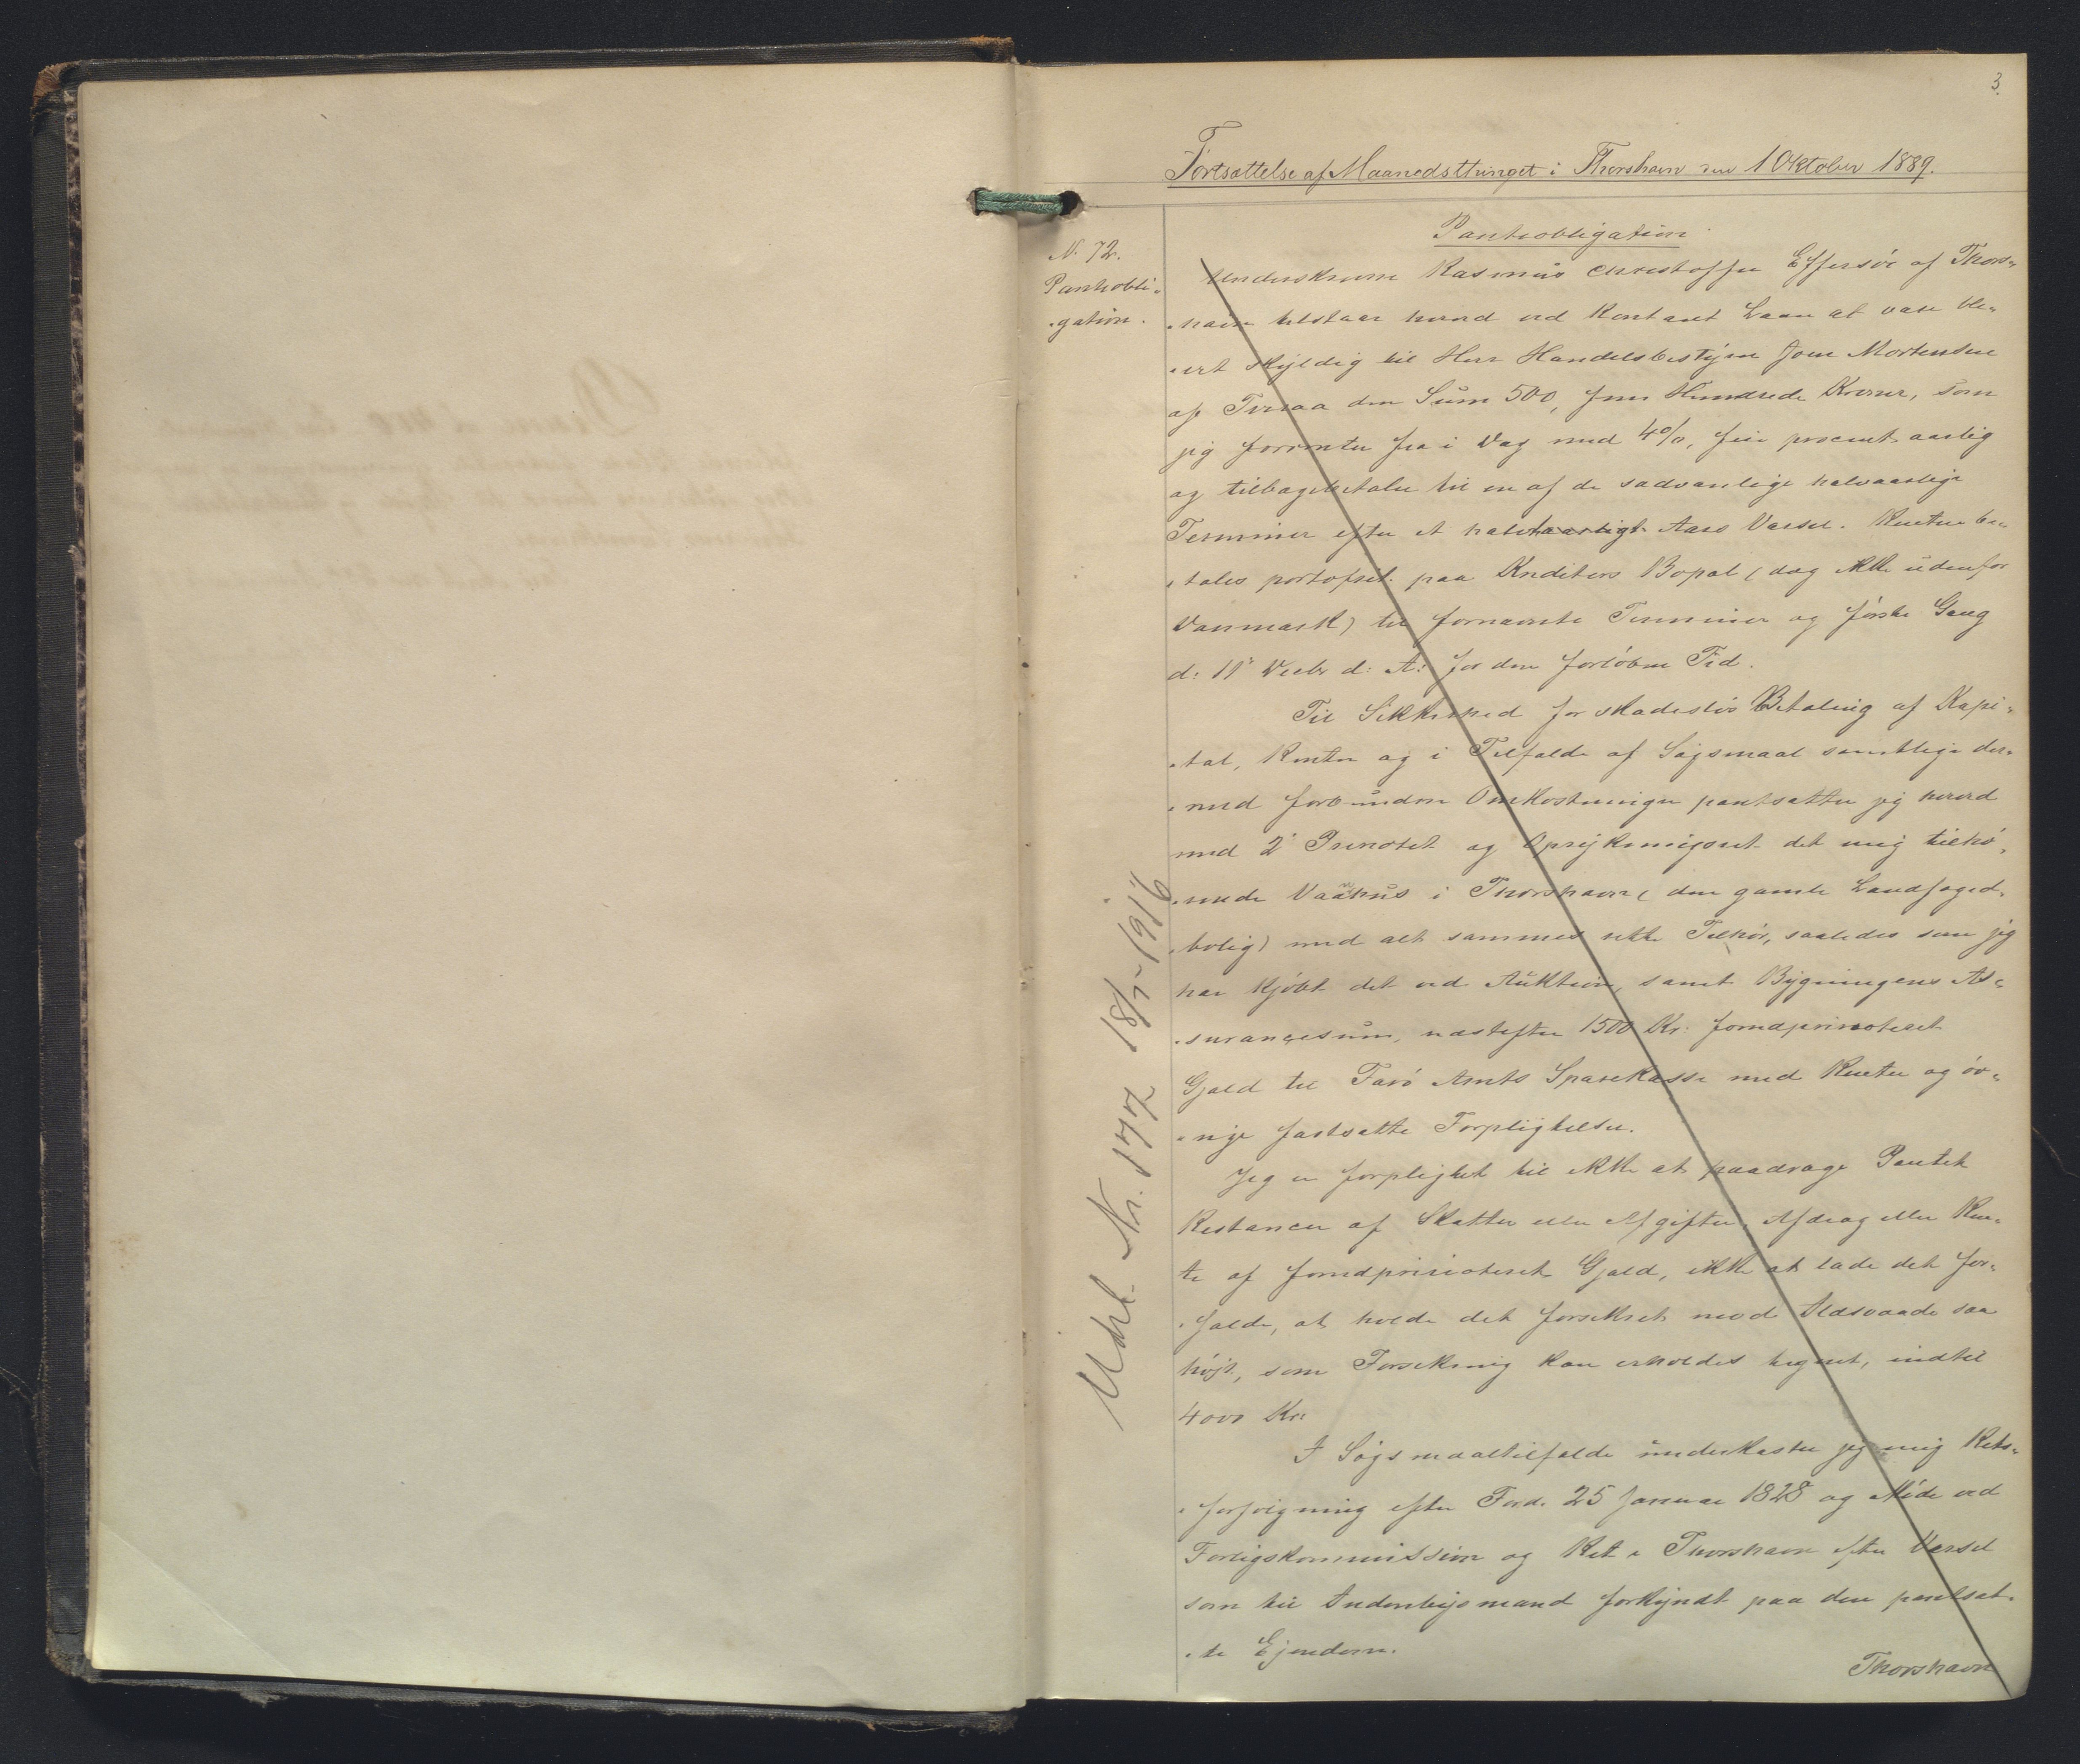 3.
Fortsættelse af Maanedsthinget i Thorshavn den 1 Oktober 1889.
N. 72.
Pantobli-
-gation.
Pantobligation
Underskrevne Rasmus Christoffer Effersöe af Thors-
-havn tilstaar herved ved Kontant Laan at være ble-
-vet skyldig til Herr Handelsbestyrer Joen Mortensen
af Tveraa den Sum 500, fem Hundrede Kroner, som
jeg forrenter fra i Dag med 4%, fire procent aarlig
og tilbagebetaler til en af de sædvanlige halvaarlige
Terminer efter et halvtaarligt Aars Varsel. Renten be-
-tales portofrit paa Kreditors Bopæl (dog ikke udenfor
Danmark) til fornævnte Terminer og første Gang
d: 11' Decbr d: A: for den forløbne Tid.
Til Sikkerhed for skadesløs Betaling af Kapi-
-tal, Renter og i Tilfælde af Søgsmaal samtlige der-
-med forbundne Omkostninger pantsætter jeg herved
med 2' Prioritet og Oprykningsret det mig tilhø-
-rende Vaanhus i Thorshavn (den gamle Landfoged-
-bolig) med alt sammes rette Tilhør, saaledes som jeg
har kjøbt det ved Auktion, samt Bygningens As-
-surancesum, næstefter 1500 Kr: forudprioriteret
Gjæld til Færø Amts Sparekasse med Renter og øv-
-rige fastsatte Forpligtelser.
Jeg er forpligtet til ikke at paadrage Pantet
Restancer af Skatter eller Afgifter, Afdrag eller Ren-
te af forudprioriteret Gjæld, ikke at lade det for-
-falde, at holde det forsikret mod Ildsvaade saa
højt, som Forsikring kan erholdes tegnet, indtil
4000 Kr:
I Søgsmaaltilfælde underkaster jeg mig Rets-
-forfølgning efter Frd. 25 Januar 1828 og Møde ved
Forligskommission og Ret i Thorshavn efter Varsel
som til Indenbysmand forkyndt paa den pantsat-
-te Ejendom.
Thorshavn
Udsl. Nr. 177 18/7-1916